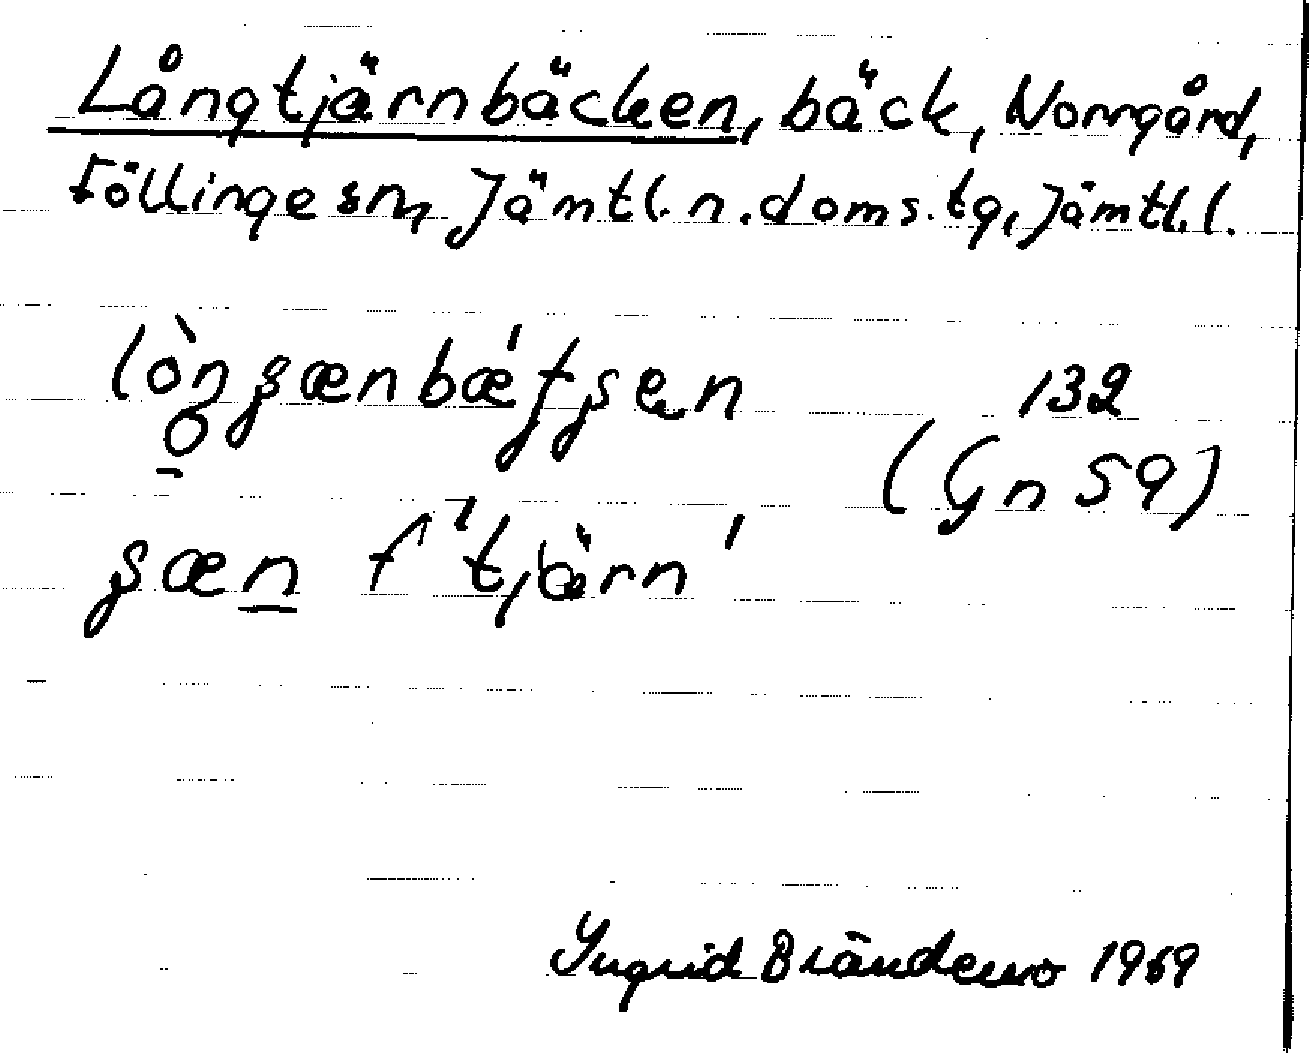 Långtjärnbäcken, bäck, Norrgård,
Föllinge sn, Jämtl. n. doms. tg, Jämtl. l.
132
(Gn 59)
f 'tjärn'
Ingrid Brändewo 1969